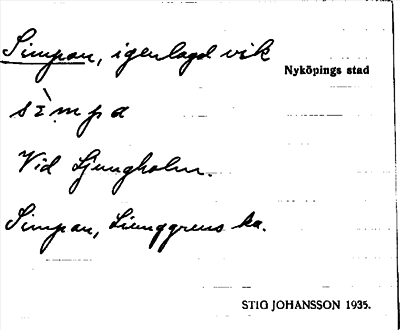 Simpan, igenlagd vik
Nyköpings stad
sìmpa
Vid Ljungholm.
Simpan, Liunggrens ka.
STIG JOHANSSON 1935.